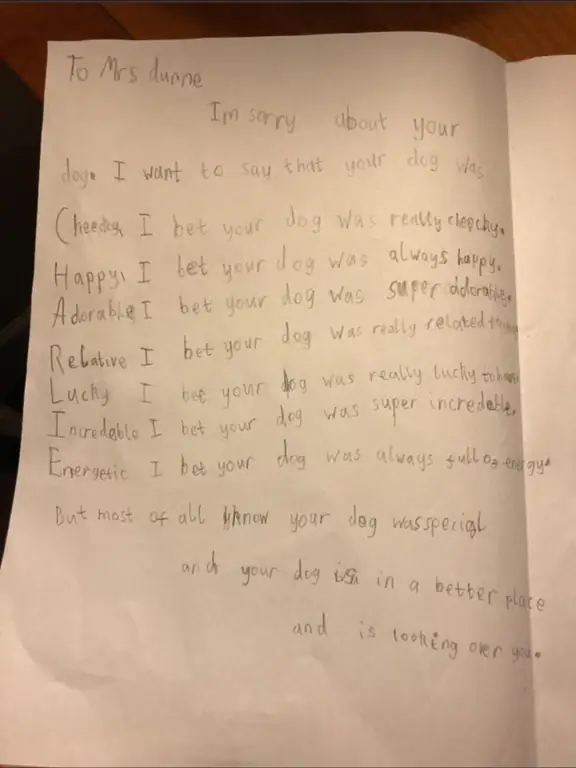 To Mrs dunne
Im sorry about your
dog. I want to say that your dog was
Cheeky, I bet your dog was really cheechy.
Happy, I bet your dog was always happy.
Adorable I bet your dog was super adorable.
Relative I bet your dog was really related to
Lucky I bet your dog was really lucky to have
Incredable I bet your dog was super incredable,
Energetic I bet your dog was always full of energy.
But most of all I know your dog was special
and your dog is in a better place
and is looking over you.